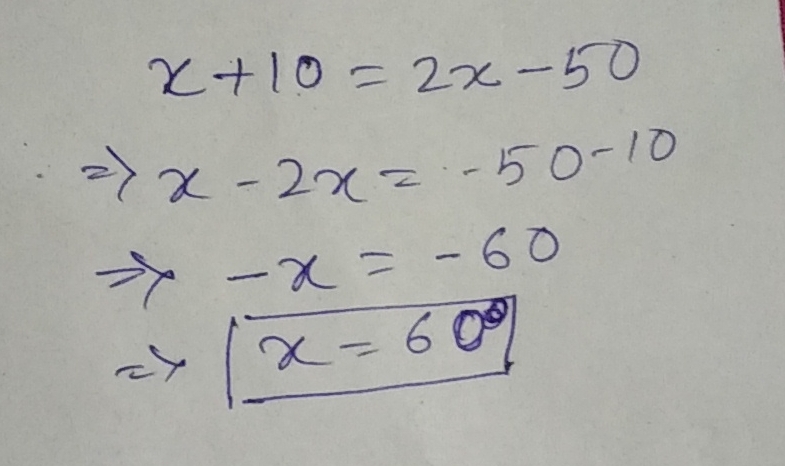 x+10 = 2x-50
=> x - 2x = -50-10
=> -x = -60
=> x = 60°